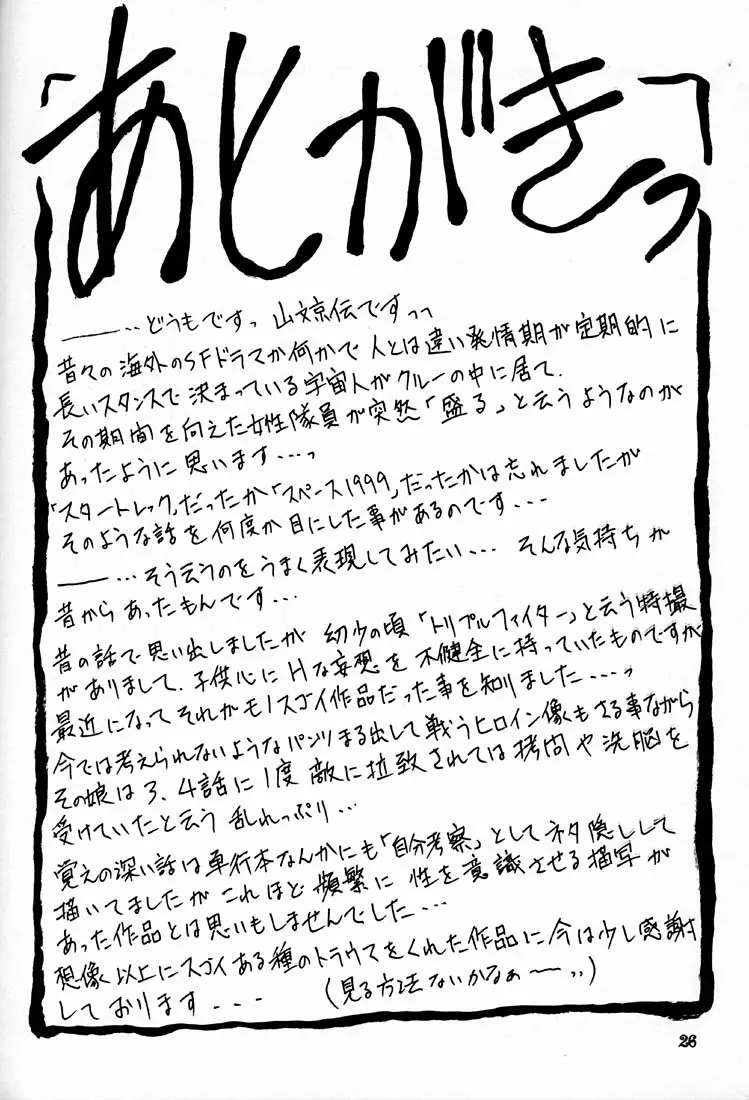 「あとがきっ」
――‥どうもですっ 山文京伝ですっっ
昔々の海外のSFドラマか何かで人とは違い発情期が定期的に
長いスタンスで決まっている宇宙人がクルーの中に居て.
その期間を向えた女性隊員が突然「盛る」と云うようなのが
あったように思います...っ
「スタートレック」だったか「スペース1999」だったかは忘れましたが
そのような話を何度か目にした事があるのです...
――...そう云うのをうまく表現してみたい... そんな気持ちが
昔からあったもんです...
昔の話で思い出しましたが 幼少の頃「トリプルファイター」と云う特撮
がありまして.子供心にHな妄想を不健全に持っていたものですが
最近になってそれがモノスゴイ作品だった事を知りました....っ
今では考えられないようなパンツまる出しして戦うヒロイン像もさる事ながら
その娘は3、4話に1度 敵に拉致されては拷問や洗脳を
受けていたと云う 乱れっぷり...
覚えの深い話は単行本なんかにも「自分考察」としてネタ隠しして
描いてましたが これほど頻繁に 性を意識させる描写が
あった作品とは思いもしませんでした...
想像以上にスゴイある種のトラウマをくれた作品に今は少し感謝
しております... (見る方法ないかなぁー‥)
26